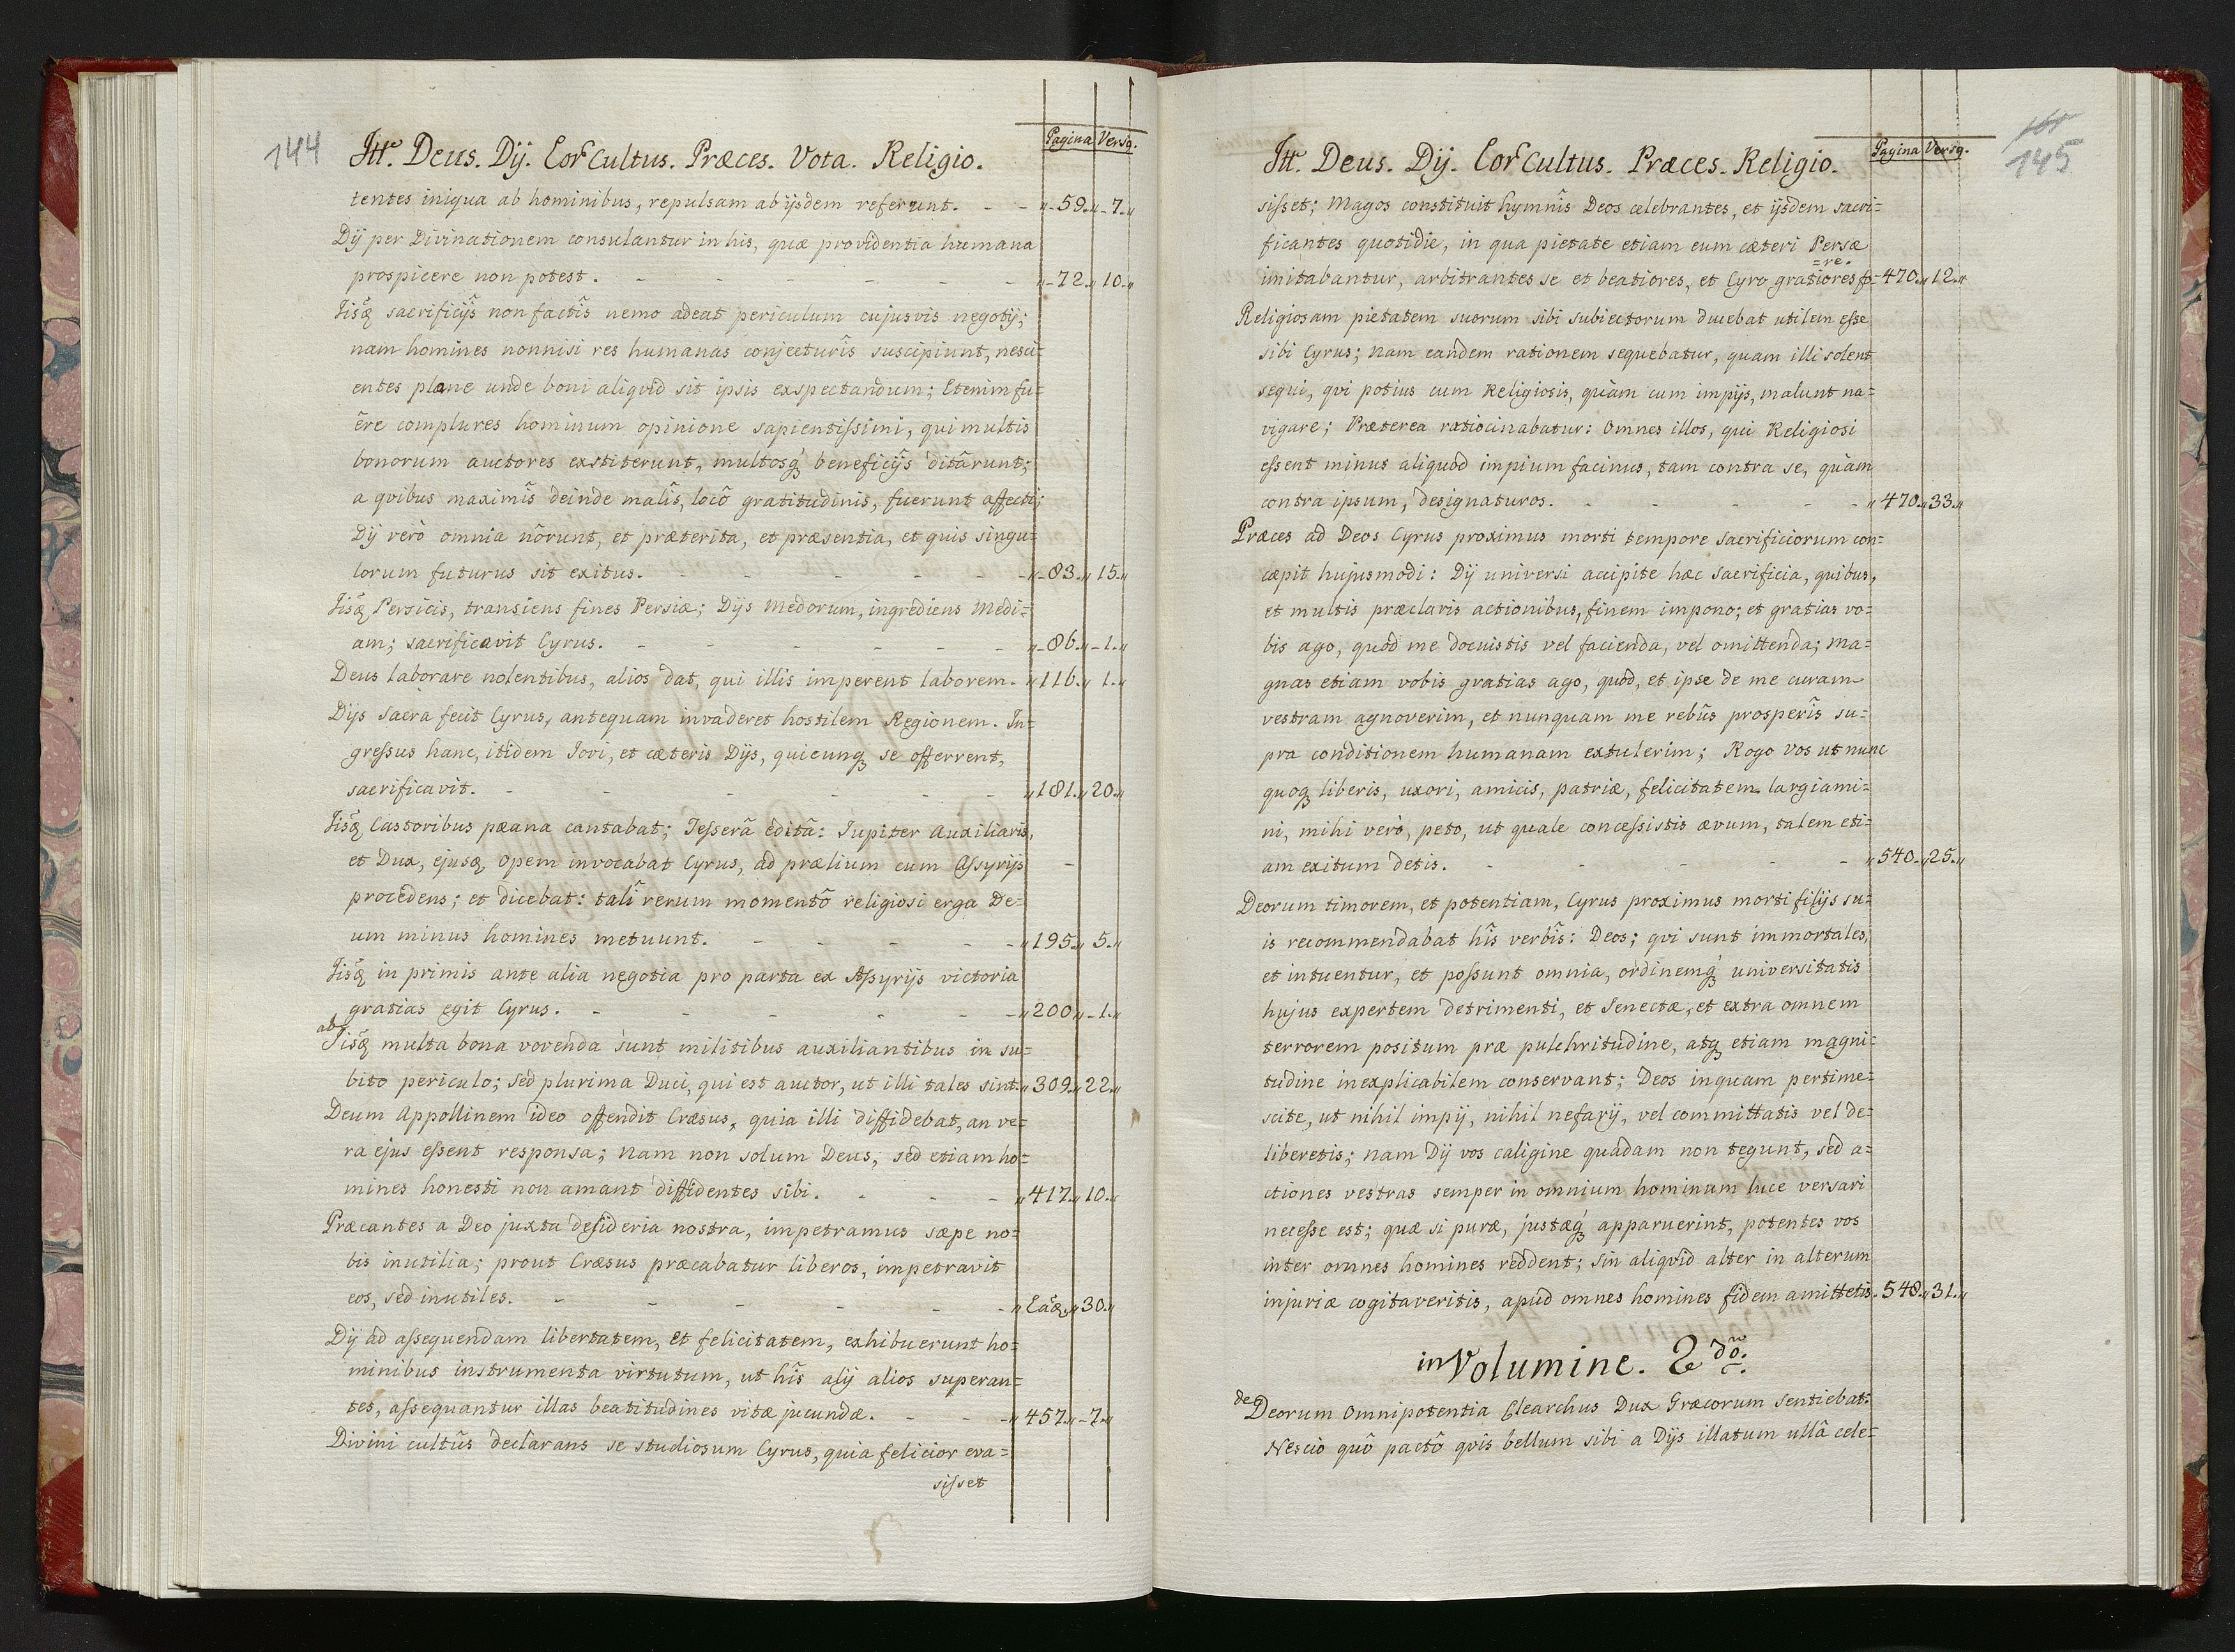 144
Itt. Deus. Dij. Eorẽ Cultus. Præces. Vota. Religio.
Pagina Versq.
tentes iniqua ab hominibus, repulsam ab ijsdem referunt. - - „-59.„-7.„
Dij per Divinationem consulantur in his, quæ providentia humana
prospicere non potest. - - - - - - „-72.„10.„
Iisq̃ sacrificijs̃ non factis̃ nemo adeat periculum cujusvis negotij;
nam homines nonnisi res humanas conjecturis̃ suscipiunt, nesci=
entes plane unde boni aliqvid sit ipsis exspectandum; Etenim fu=
êre complures hominum opinione sapientissimi, qui multis
bonorum auctores exstiterunt, multosq́ beneficijs̃ ditârunt;
a qvibus maximis̃ deinde malis̃, locô gratitudinis, fuerunt affecti;
Dij verò omnia nôrunt, et præterita, et præsentia, et quis singu=
lorum futurus sit exitus. - - - - - - „-83.„15.„
Iisq̃ Persicis, transiens fines Persiæ; Dijs Medorum, ingrediens Medi=
am; sacrificavit Cyrus. - - - - - - „-86.„-1.„
Deus laborare nolentibus, alios dat, qui illis imperent laborem. „116.„ 1.„
Dijs sacra fecit Cyrus, antequam invaderet hostilem Regionem. In=
gressus hanc, itidem Iovi, et cæteris Dijs, quicunq̨ se offerrent,
sacrificavit. - - - - - - „181.„20.„
Iisq̃ Castoribus pæana cantabat; Tesserâ editâ: Iupiter Auxiliaris,
et Dux, ejusq̨ opem invocabat Cyrus, ad prælium cum Assyrijs -
procedens; et dicebat: talî rerum momentô religiosi erga De=
um minus homines metuunt. - - - - - „195.„ 5.„
Iisq̃ in primis ante alia negotia pro parta ex Assyrijs victoria
gratias egit Cyrus. - - - - - - „200„-1.„
ab Iisq̃ multa bona vovenda sunt militibus auxiliantibus in su=
bito periculo; sed plurima Duci, qui est auctor, ut illi tales sint. „309.„22.„
Deum Appollinem ideo offendit Cræsus, quia illi diffidebat, an ve=
ra ejus essent responsa; nam non solum Deus, sed etiam ho=
mines honesti non amant diffidentes sibi. - - - „417.„10.„
Præcantes a Deo juxta desideria nostra, impetramus sæpe no=
bis inutilia; prout Cræsus præcabatur liberos, impetravit
eos, sed inutiles. - - - - - - „Eãq̨.„30.„
Dij ad assequendam libertatem, et felicitatem, exhibuerunt ho=
minibus instrumenta virtutum, ut his̃ alij alios superan=
tes, assequantur illas beatitudines vitæ jucundæ. - - - „457.„-7.„
Divini cultûs declarans se studiosum Cyrus, quia felicior eva=
sisset
145
Itt. Deus. Dij. Eorẽ Cultus. Præces. Religio.
Pagina Versq.
sisset; Magos constituit hymnis̃ Deos celebrantes, et ijsdem sacri=
ficantes quotidie, in qua pietate etiam eum cæteri Persæ
=re.
imitabantur, arbitrantes se et beatiores, et Cyro gratiores fo= 470.„12.„
Religiosam pietatem suorum sibi subiectorum ducebat utilem esse
sibi Cyrus; nam eandem rationem sequebatur, quam illi solent
sequi, qvi potius cum Religiosis, quàm cum impijs, malunt na=
vigare; Præterea ratiocinabatur: Omnes illos, qui Religiosi
essent minus aliquod impium facinus, tam contra se, quàm
contra ipsum, designaturos. - - - - - „470.„33.„
Præces ad Deos Cyrus proximus morti tempore sacrificiorum con=
cæpit hujusmodi: Dij universi accipite hæc sacrificia, quibus,
et multis præclaris actionibus, finem impono; et gratias vo=
bis ago, quòd me docuistis vel facienda, vel omittenda; ma=
gnas etiam vobis gratias ago, quòd, et ipse de me curam
vestram agnoverim, et nunquam me rebûs prosperis̃ su=
pra conditionem humanam extulerim; Rogo vos ut nunc
quoq̨ liberis, uxori, amicis, patriæ, felicitatem largiami=
ni, mihi verò, peto, ut quale concessistis ævum, talem eti=
am exitum detis. - - - - - „540.„25.„
Deorum timorem, et potentiam, Cyrus proximus morti filijs su=
is recommendabat his̃ verbis̃: Deos; qvi sunt immortales,
et intuentur, et possunt omnia, ordinemq́ universitatis
hujus expertem detrimenti, et senectæ, et extra omnem
terrorem positum præ pulchritudine, atq̨ etiam magni=
tudine inexplicabilem conservant; Deos inquam pertime=
scite, ut nihil impij, nihil nefarij, vel committatis vel de=
liberetis; nam Dij vos caligine quâdam non tegunt, sed a=
ctiones vestras semper in omnium hominum luce versari
necesse est; quæ si puræ, justæq́ apparuerint, potentes vos
inter omnes homines reddent; sin aliqvid alter in alterum
injuriæ cogitaveritis, apud omnes homines fidem amittetis. 548.„31.„
in Volumine. 2do.
de Deorum Omnipotentia Clearchus Dux Græcorum sentiebat:
Nescio quô pactô qvis bellum sibi a Dijs illatum ullâ cele=